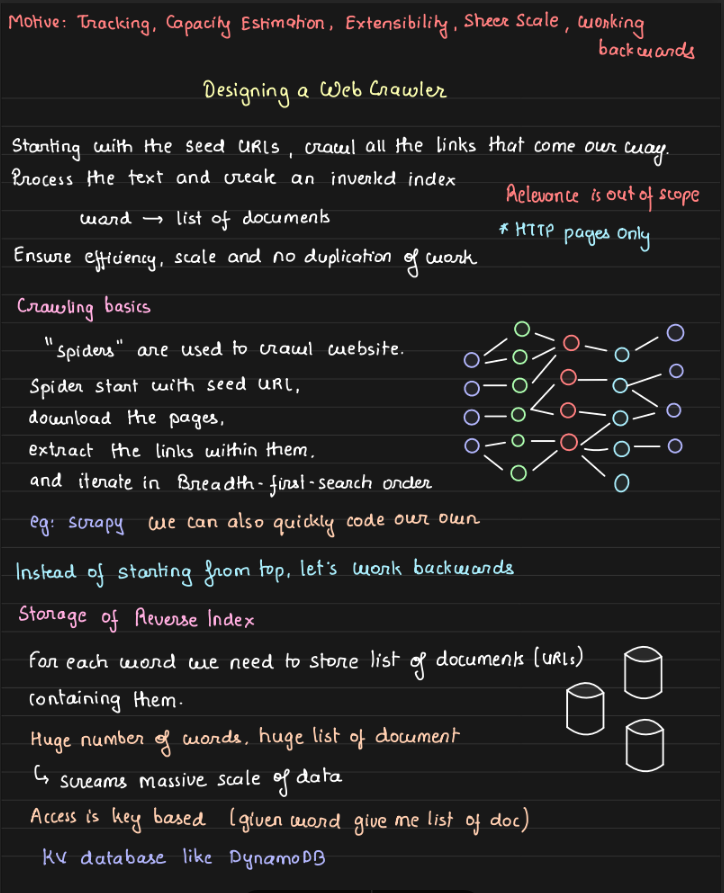 Motive: Tracking, Capacity Estimation, Extensibility, Sheer Scale, working
backwards
Designing a Web Crawler
Starting with the seed URLs, crawl all the links that come our way.
Process the text and create an inverted index
word → list of documents
Relevance is out of scope
* HTTP pages only
Ensure efficiency, scale and no duplication of work
Crawling basics
"Spiders" are used to crawl website.
Spider start with seed URL,
download the pages,
extract the links within them.
and iterate in Breadth-first-search order
eg: scrapy we can also quickly code our own
Instead of starting from top, let's work backwards
Storage of Reverse Index
For each word we need to store list of documents (URLs)
containing them.
Huge number of words, huge list of document
↳ screams massive scale of data
Access is key based (given word give me list of doc)
KV database like DynamoDB